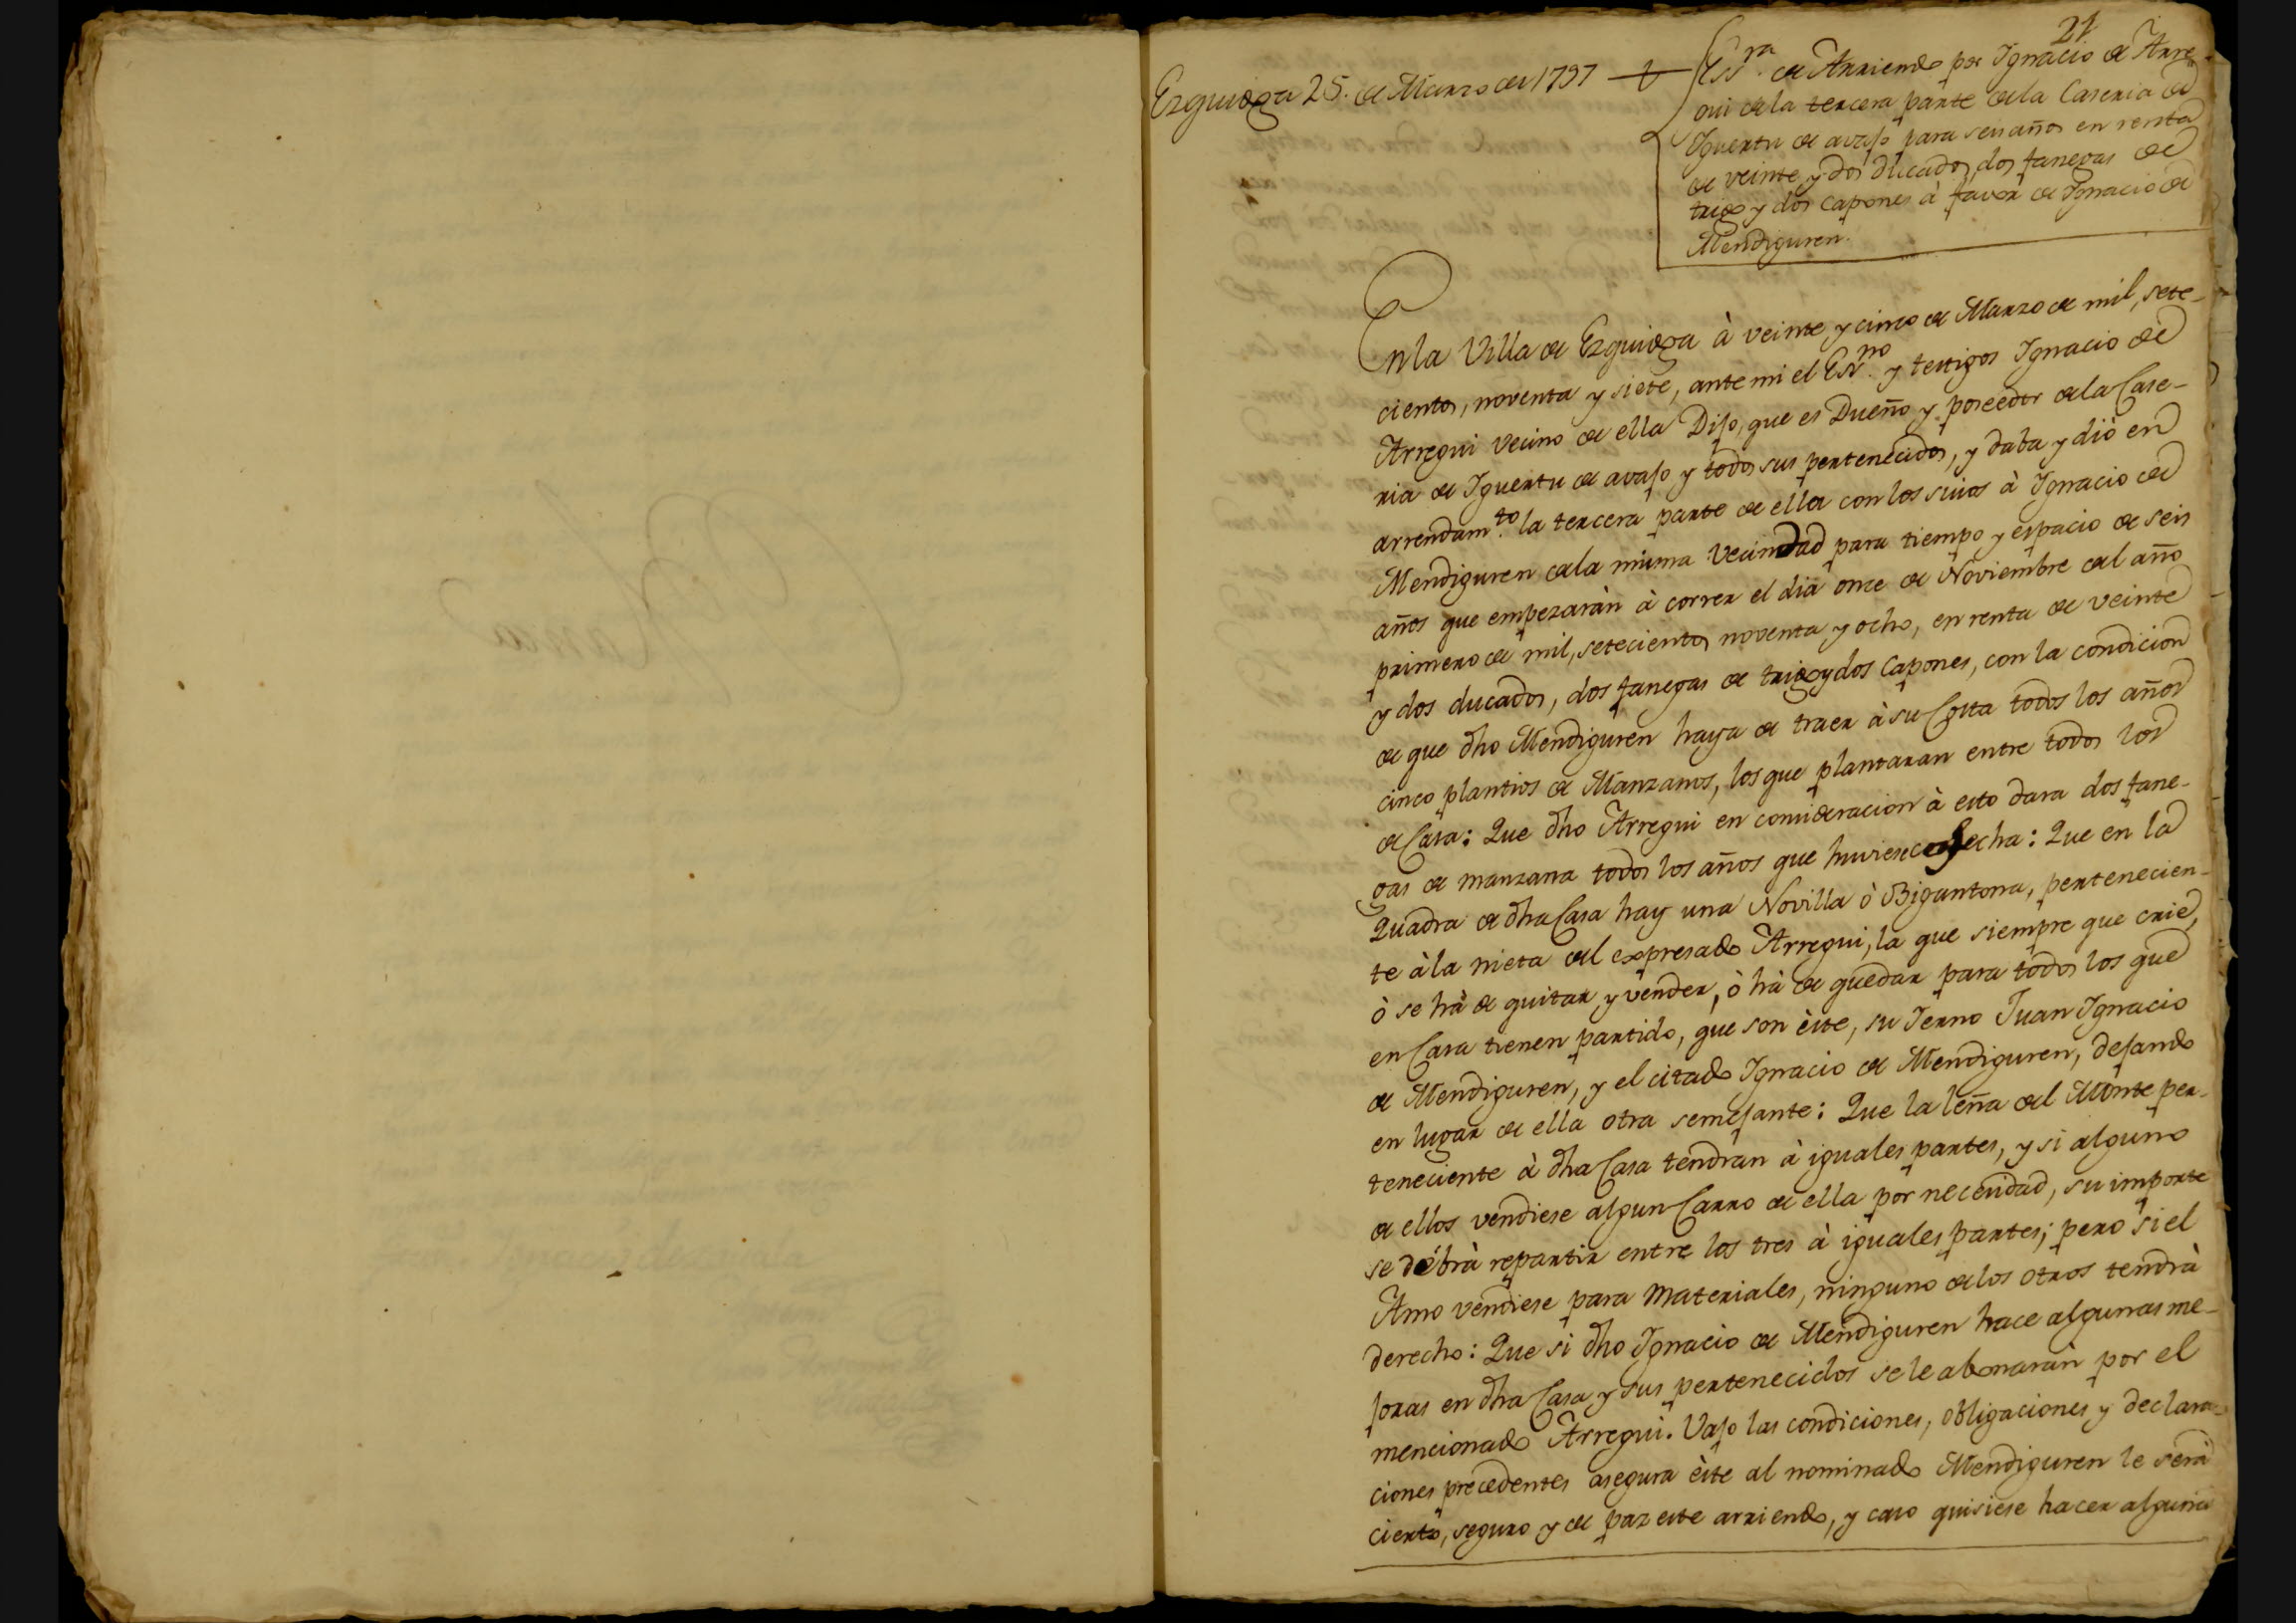 21
Ezquioga 25. de Marzo de 1797
Essra. de Arriendo por Ignacio de Arre-
gui de la tercera parte de la Caseria de
Iguertu de avajo para seis años en renta
de veinte y dos Ducados, dos fanegas de
trigo y dos capones à favor de Ignacio de
Mendiguren.
En la Villa de Ezquioga à veinte y cinco de Marzo de mil, sete-
cientos, noventa y siete, ante mi el Esno. y testigos Ignacio de
Arregui vecino de ella Dijo, que es Dueño y poseedor de la Case-
ria de Iguertu de avajo y todos sus pertenecidos, y daba y diò en
arrendamto. la tercera parte de ella con los suios à Ignacio de
Mendiguren de la misma Vecindad para tiempo y espacio de seis
años que empezaràn à correr el dia onze de Noviembre del año
primero de mil, setecientos noventa y ocho, en renta de veinte
y dos ducados, dos fanegas de trigo y dos Capones, con la condicion
de que dho Mendiguren haya de traer à su Costa todos los años
cinco plantios de Manzanos, los que plantaran entre todos los
de Casa: Que dho Arregui en consideracion à esto dara dos fane-
gas de manzana todos los años que huviese cosecha: Que en la
Quadra de dha Casa hay una Novilla ò Bigantona, pertenecien-
te à la nieta del expresado Arregui, la que siempre que crie,
ò se hà de quitar y vender, ò hà de quedar para todos los que
en Casa tienen partido, que son èste, su Ierno Juan Ignacio
de Mendiguren, y el citado Ignacio de Mendiguren, dejando
en lugar de ella otra semejante: Que la leña del Monte per-
teneciente à dha Casa tendran à iguales partes, y si alguno
de ellos vendiese algun Carro de ella por necesidad, su importe
se debrà repartir entre los tres à iguales partes; pero si el
Amo vendiese para Materiales, ninguno de los otros tendrà
derecho: Que si dho Ignacio de Mendiguren hace algunas me-
joras en dha Casa y sus pertenecidos se le abonaràn por el
mencionado Arregui. Vajo las condiciones, obligaciones y declara-
ciones precedentes asegura èste al nominado Mendiguren le serà
cierto, seguro y de paz este arriendo, y caso quisiese hacer alguna